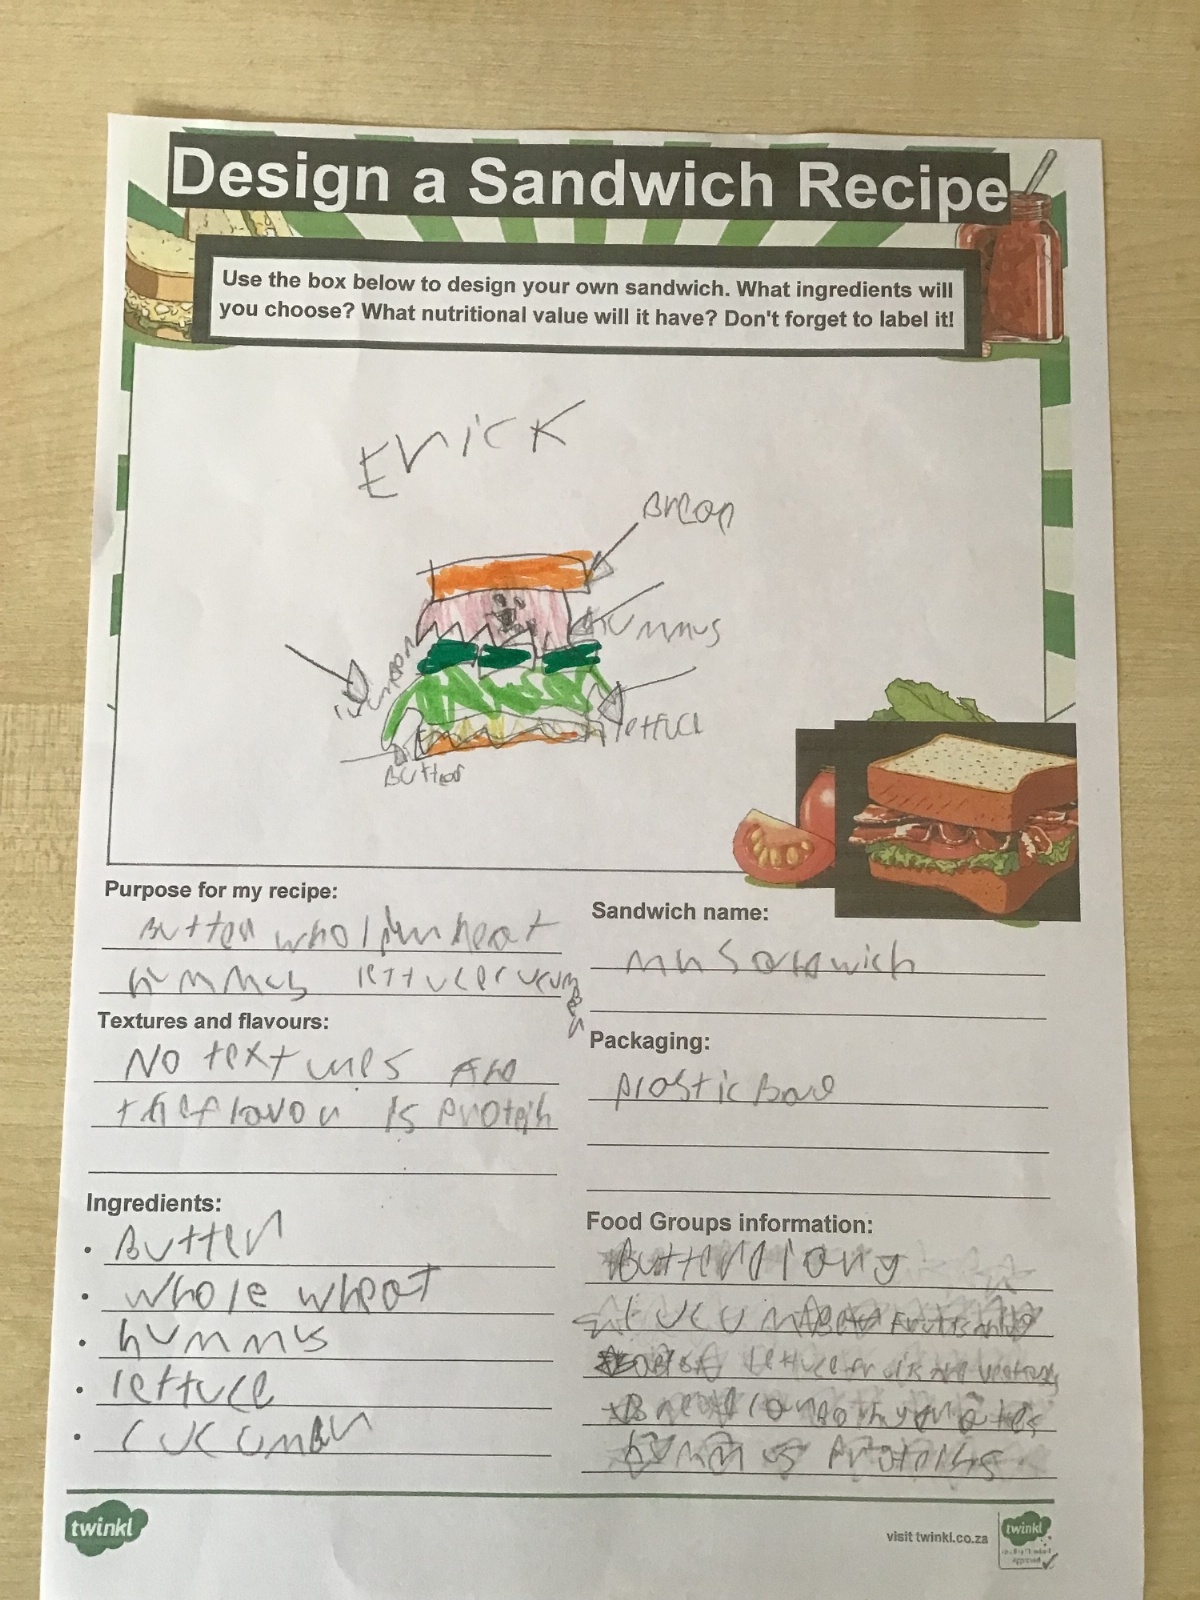 Design a Sandwich Recipe
Use the box below to design your own sandwich. What ingredients will
you choose? What nutritional value will it have? Don't forget to label it!
Erick
Bread
Hummus
lettuce
Butter
Purpose for my recipe:
Butter
hummus lettuce cucumber
Sandwich name:
Textures and flavours:
No textures And
the flavour is Protein
Packaging:
Plastic
Ingredients:
• Butter
• whole wheat
• hummus
• lettuce
• cucumber
Food Groups information:
Butter
hummus Proteins
twinkl
visit twinkl.co.za
twinkl
Quality Standard
Approved